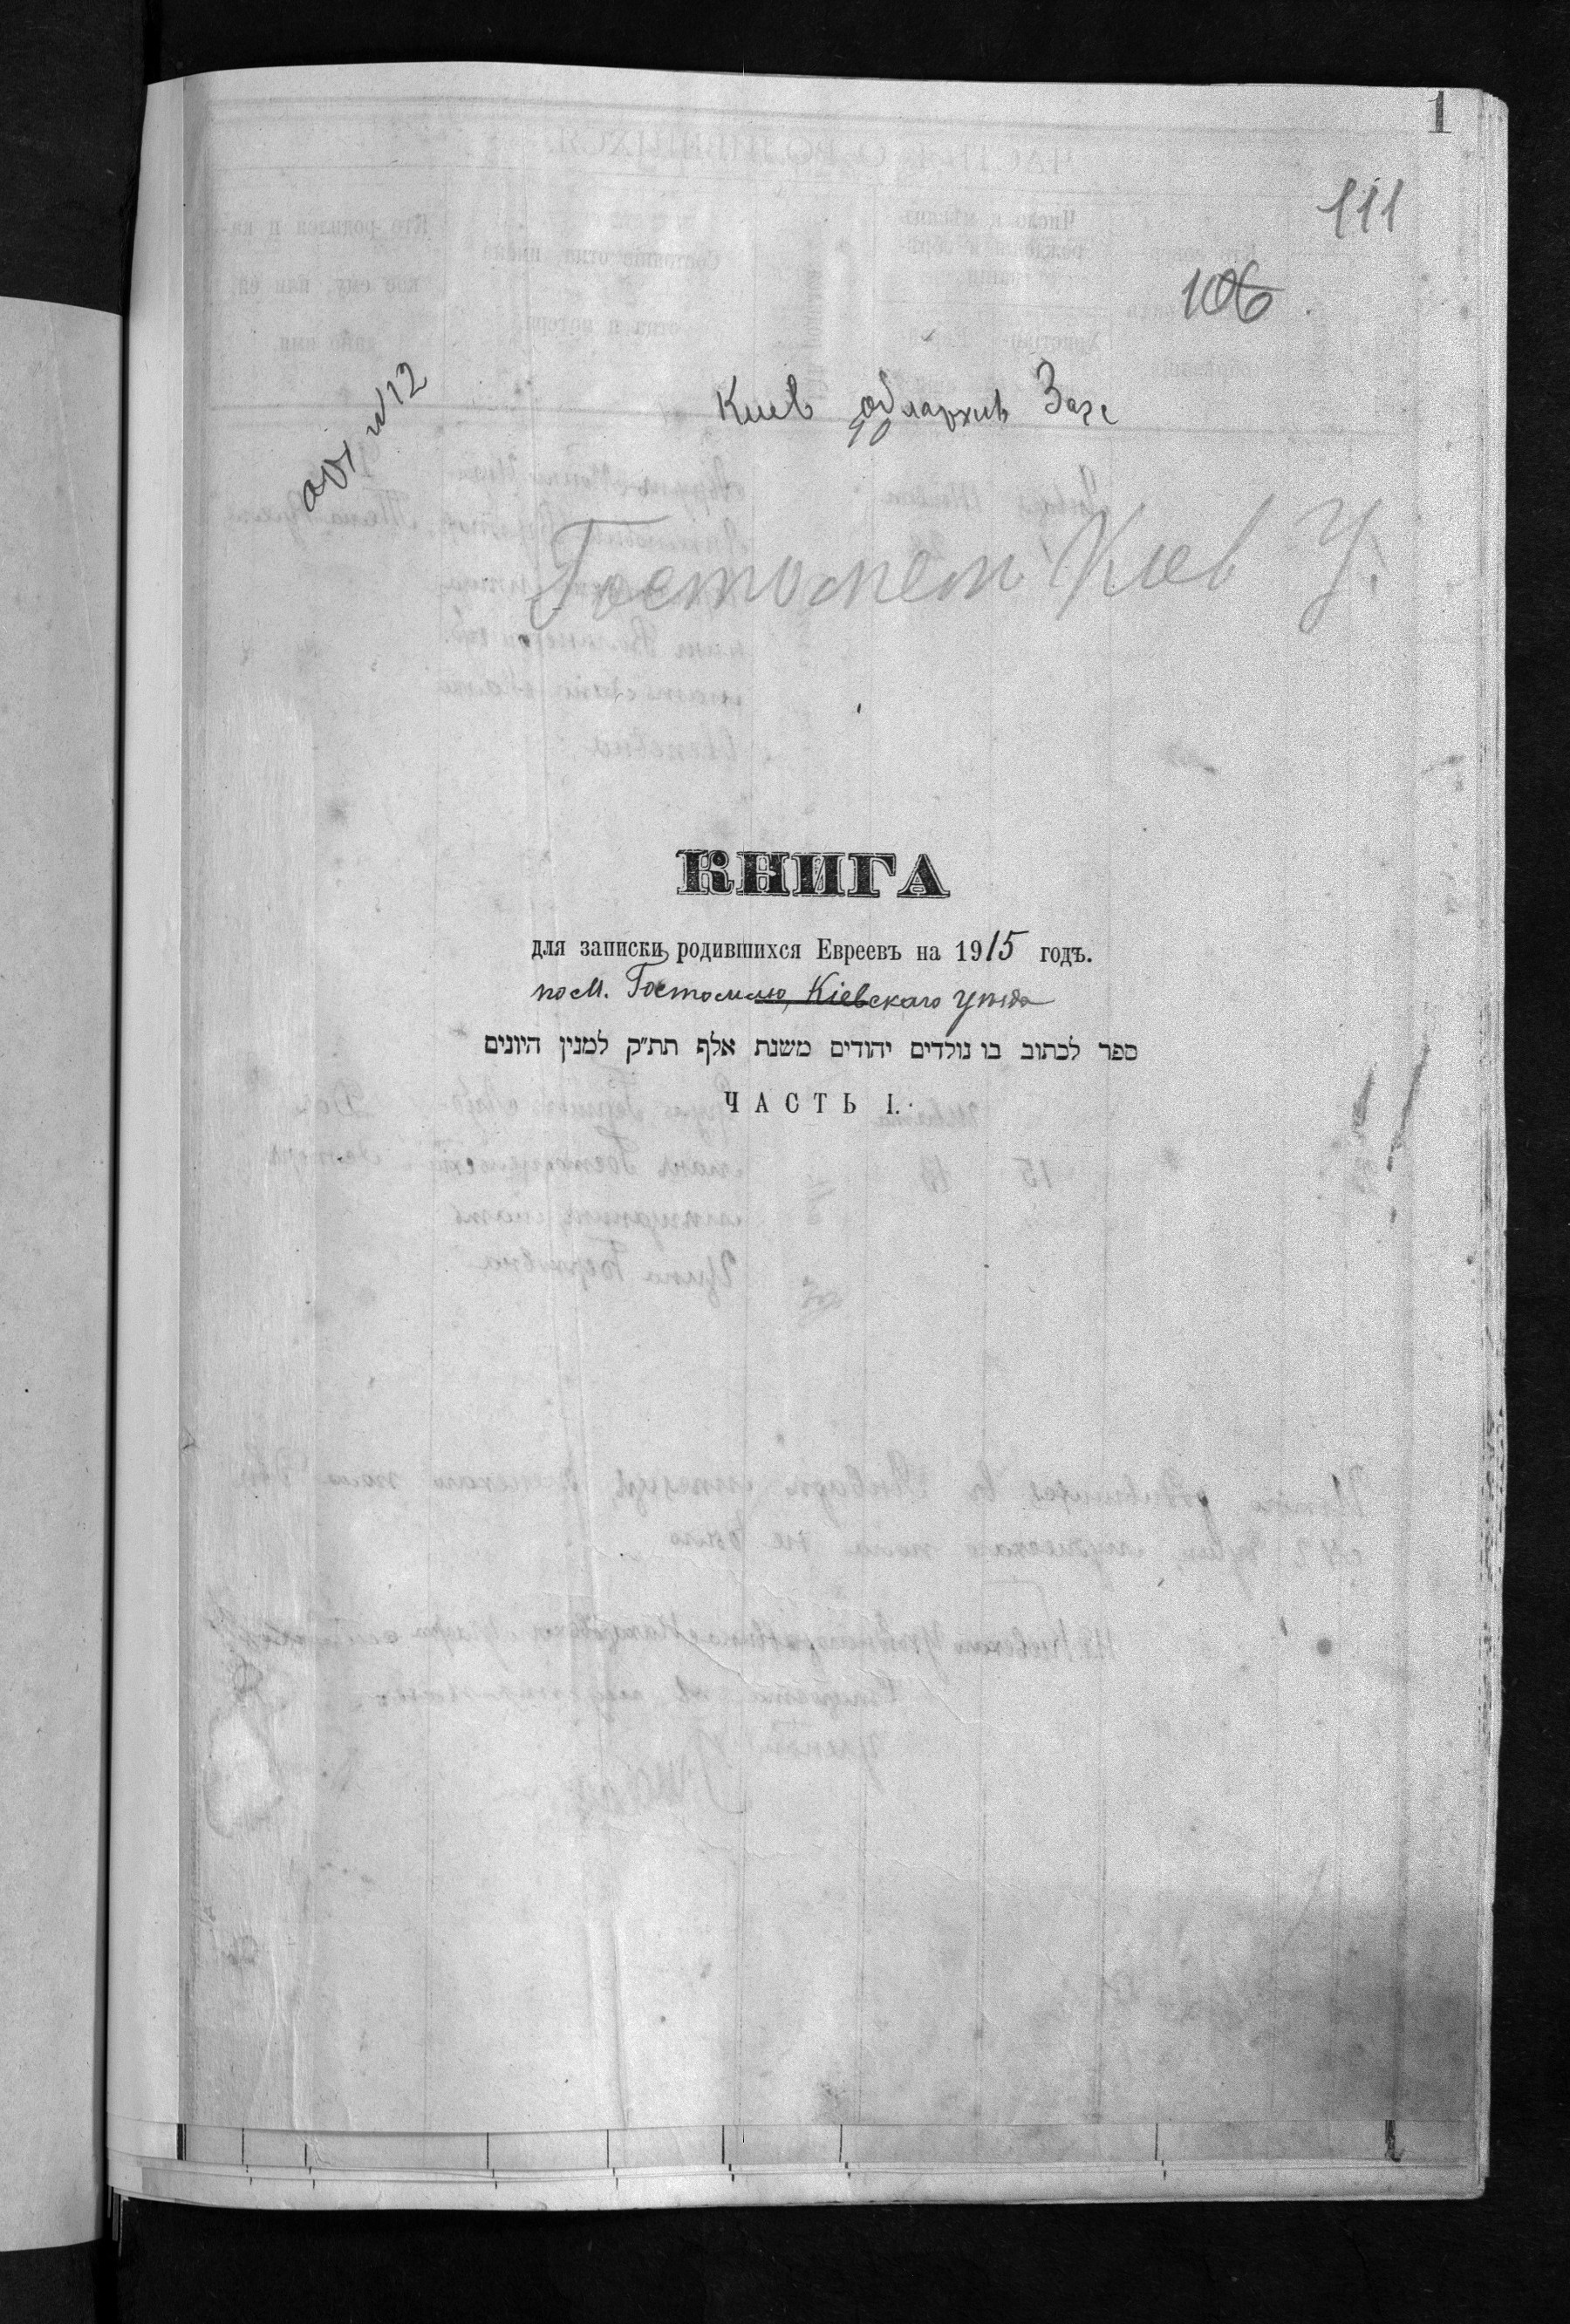 1
111
106
арх №12
Киев облархив Загс
40
Гостомель Киев У.
КНИГА
для записки родившихся Евреевъ на 1915 годъ.
по м. Гостомлю, Кіевскаго уѣзда
ספר לכתוב בו נולדים יהודים משנת אלף תת״ק למנין היונים
ЧАСТЬ I.